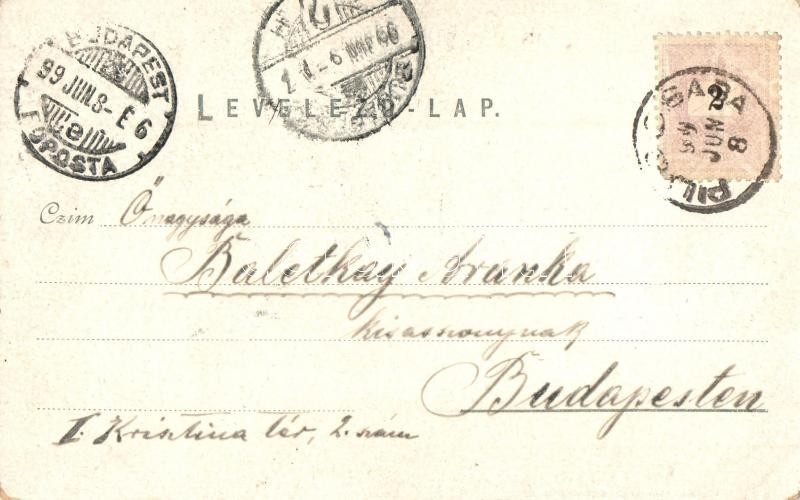 BUDAPEST
99 JUN 8-E 6
FŐPOSTA
LEVELEZŐ-LAP.
2
99 JUN 8
Czim Őnagysága
Baletkay Aranka
kisasszonynak
Budapesten
I. Krisztina tér, 2. szám